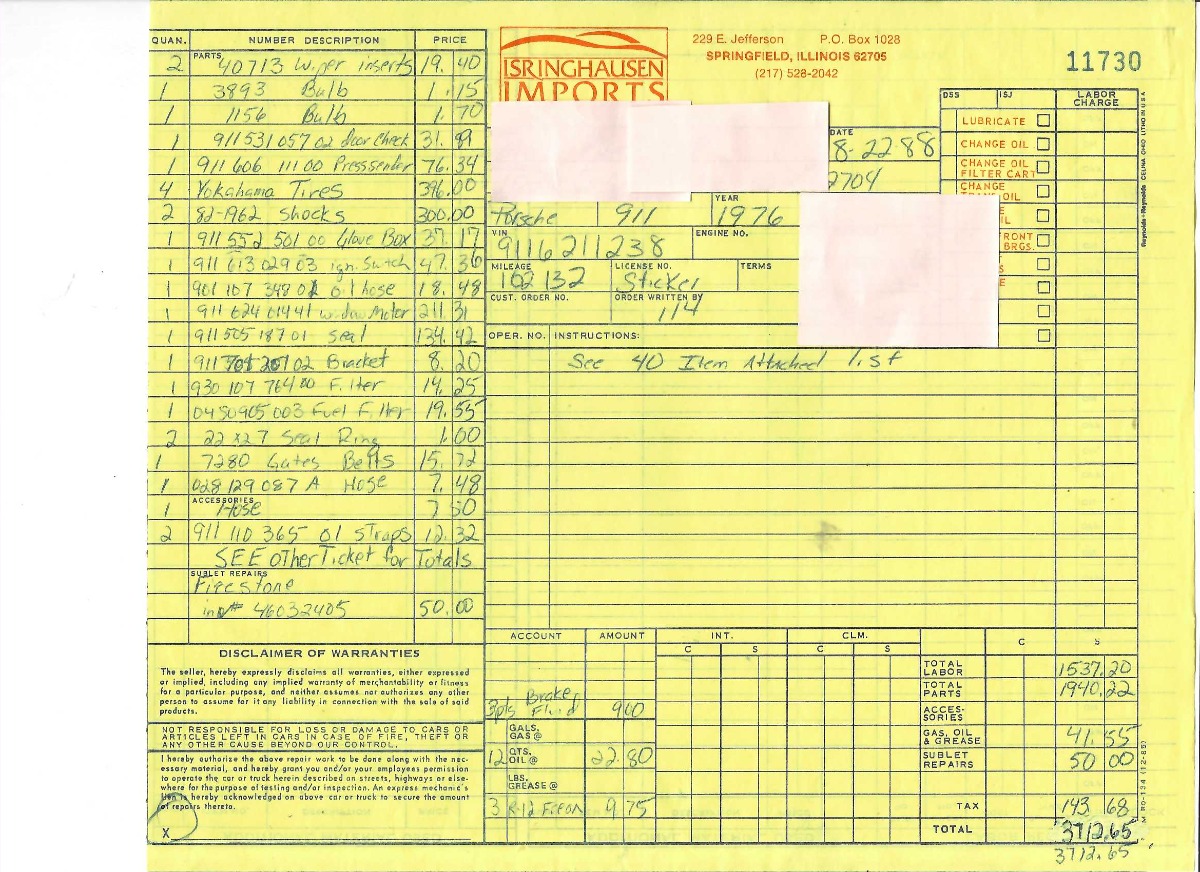 229 E. Jefferson P.O. Box 1028
SPRINGFIELD, ILLINOIS 62705
(217) 528-2042
11730
ISRINGHAUSEN
IMPORTS
QUAN. NUMBER DESCRIPTION PRICE
PARTS
2 40713 Wiper inserts 19.40
1 3893 Bulb 1.15
1 1156 Bulb 1.70
1 911 531 057 02 door Check 31.89
1 911 606 111 00 Presssender 76.34
4 Yokahama Tires 396.00
2 82-1962 Shocks 300.00
1 911 552 501 00 Glove Box 37.17
1 911 613 029 03 ign. Switch 47.36
1 901 107 348 01 oil hose 18.48
1 911 624 014 41 window Motor 211.31
1 911 505 187 01 Seal 134.42
1 911 701 207 02 Bracket 8.20
1 930 107 764 00 Filter 14.25
1 0450905003 Fuel Filter 19.55
2 22x27 Seal Ring 1.00
1 7280 Gates Belts 15.72
1 028 129 087 A Hose 7.48
ACCESSORIES
1 Hose 7 50
2 911 110 365 01 Straps 12.32
SEE Other Ticket for Totals
SUBLET REPAIRS
Firestone
inv# 46032405 50.00
DATE
8-22 88
2704
YEAR
Porsche 911 1976
VIN ENGINE NO.
9116211238
MILEAGE LICENSE NO. TERMS
102132 Sticker
CUST. ORDER NO. ORDER WRITTEN BY
114
DSS ISJ LABOR CHARGE
LUBRICATE
CHANGE OIL
CHANGE OIL
FILTER CART
CHANGE
OIL
FRONT
BRGS.
OPER. NO. INSTRUCTIONS:
See 40 Item Attached list
DISCLAIMER OF WARRANTIES
The seller, hereby expressly disclaims all warranties, either expressed
or implied, including any implied warranty of merchantability or fitness
for a particular purpose, and neither assumes nor authorizes any other
person to assume for it any liability in connection with the sale of said
products.
NOT RESPONSIBLE FOR LOSS OR DAMAGE TO CARS OR
ARTICLES LEFT IN CARS IN CASE OF FIRE, THEFT OR
ANY OTHER CAUSE BEYOND OUR CONTROL.
I hereby authorize the above repair work to be done along with the nec-
essary material, and hereby grant you and/or your employees permission
to operate the car or truck herein described on streets, highways or else-
where for the purpose of testing and/or inspection. An express mechanic's
lien is hereby acknowledged on above car or truck to secure the amount
of repairs thereto.
X
ACCOUNT AMOUNT INT. CLM. C S
C S C S
3pts Brake Fluid 9 60
GALS. GAS @
12 QTS. OIL @ 22.80
LBS. GREASE @
3 R-12 Freon 9.75
TOTAL LABOR 1537.20
TOTAL PARTS 1940.22
ACCES-SORIES
GAS, OIL & GREASE 41.55
SUBLET REPAIRS 50 00
TAX 143 68
TOTAL 3712.65
3712.65